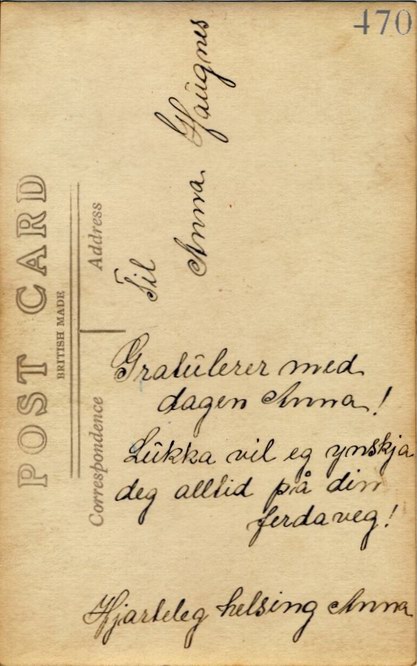 470
POST CARD
BRITISH MADE
Correspondence
Address
Til
Anna Haugnes
Gratŭlerer med
dagen Anna!
Lŭkka vil eg ynskja
deg alltid på din
ferdaveg!
Hjarteleg helsing Anna